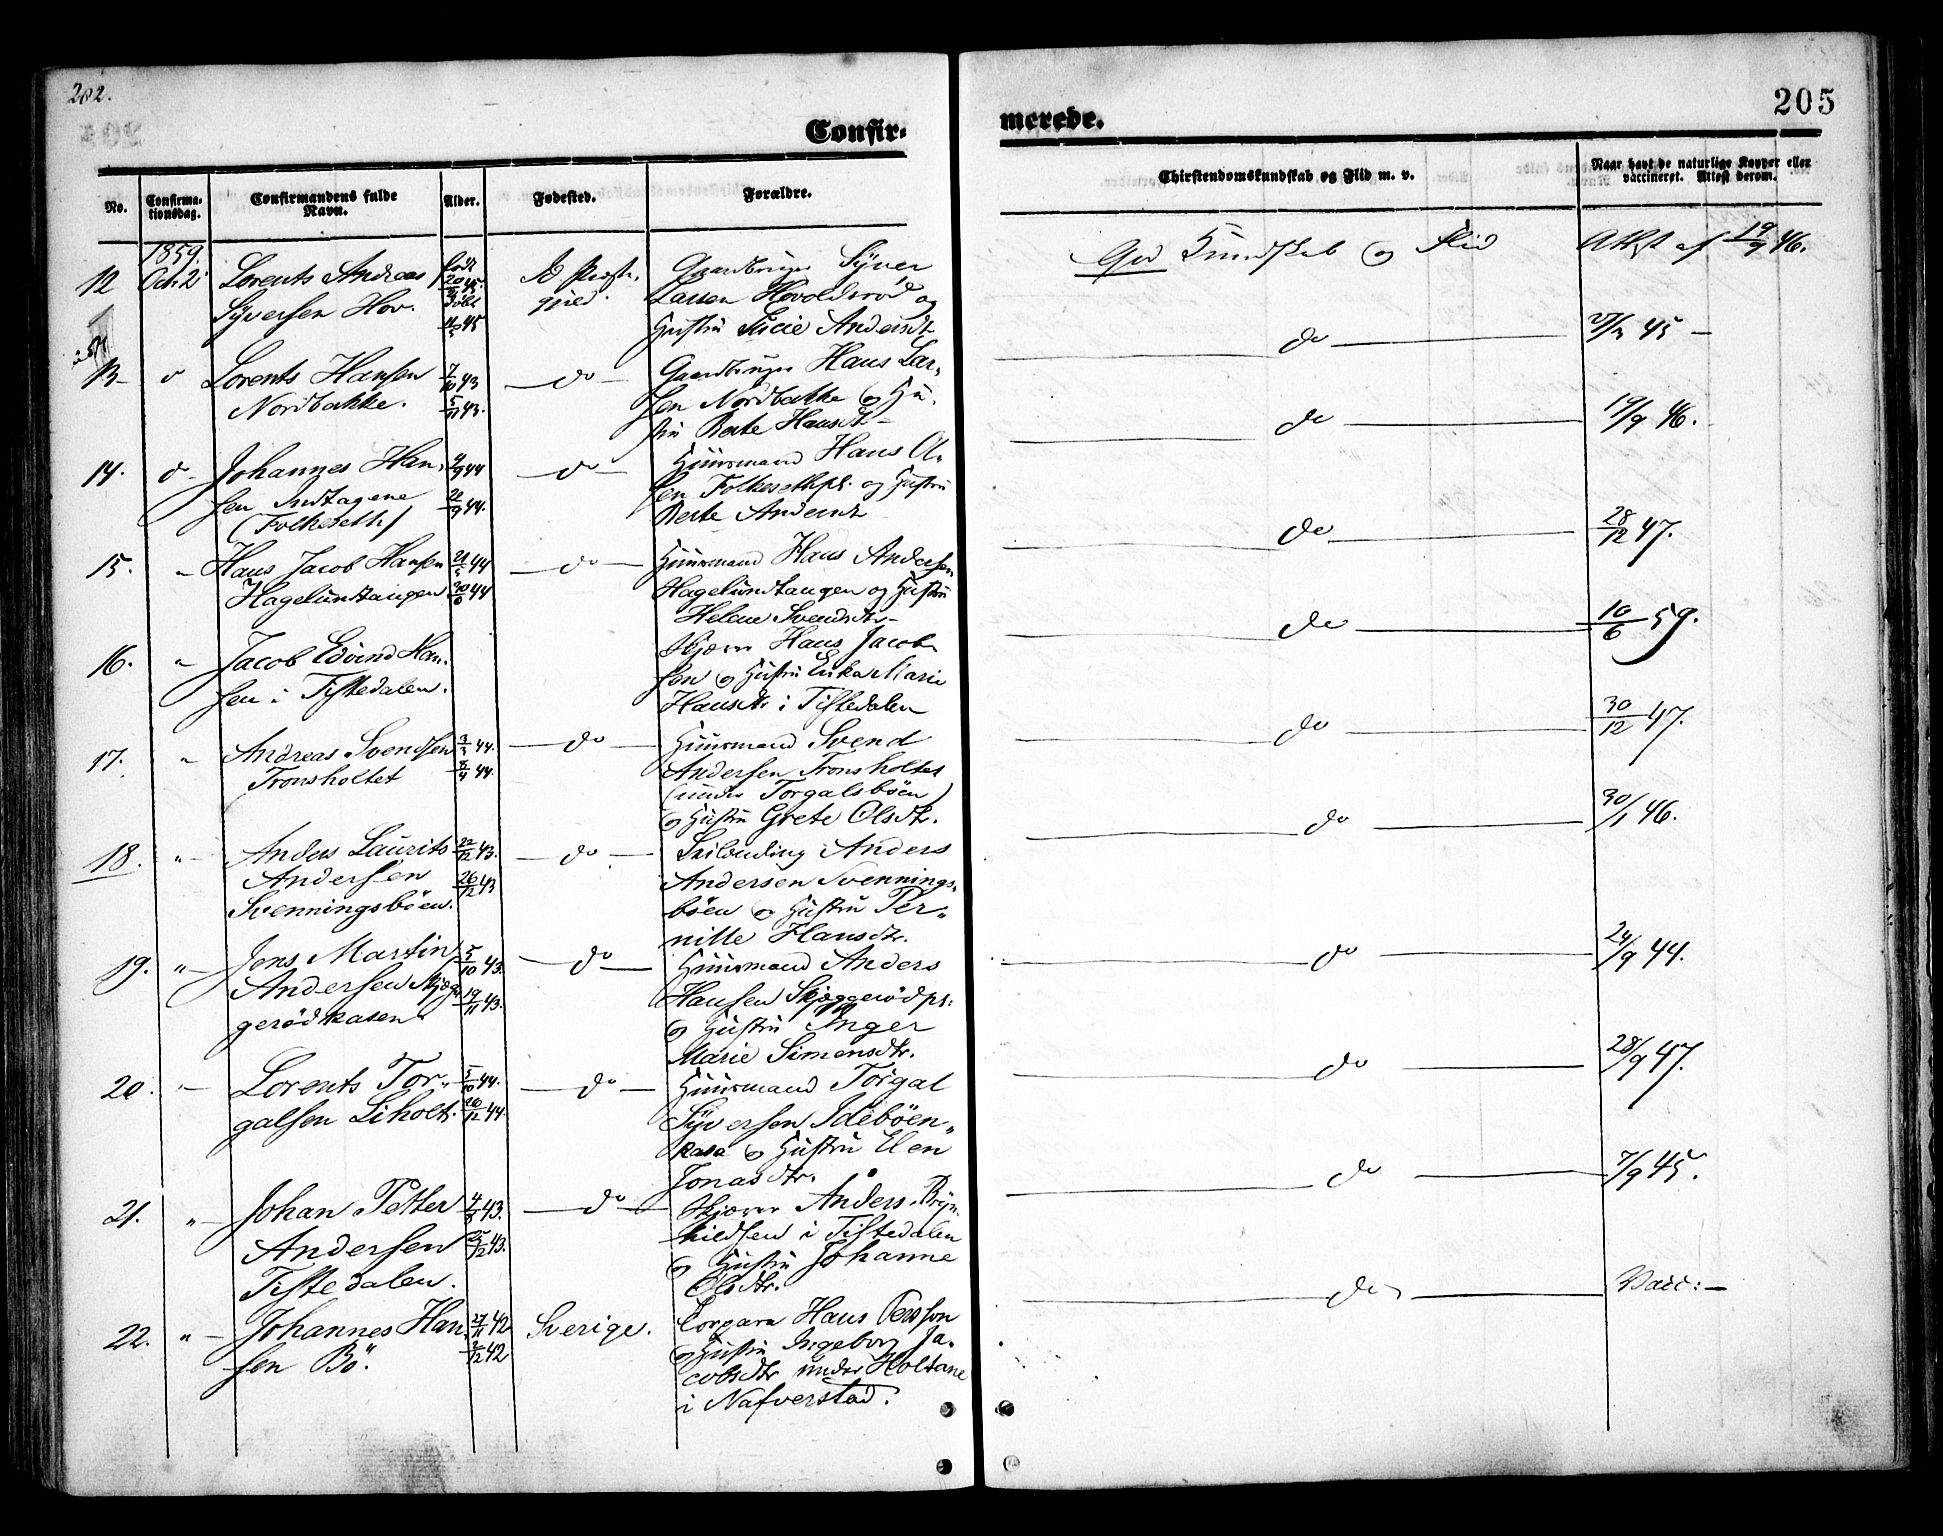 202.
205
Confir-
merede.
No.
Confirma-
tionsdag.
Confirmandens fulde
Navn.
Alder.
Fødested.
Forældre.
Christendomskundskab og Flid m. v.
Naar havt de naturlige Kopper eller
vaccineret. Attest derom.
1859.
12 Oct. 2 Lorents Andreas
Syversen Hov.
født
20/4 45.
døbt
11/5 45
Præste-
gjeld.
Gaardbruger Syver
Larsen Hovoldsrød og
Hustru Lucie Andersdt.
God Kundskab og Flid
Attst af 19/9 46.
13 Lorents Hansen
Nordbakke.
7/10 43
5/11 43.
do
Gaardbruger Hans Lar-
sen Nordbakke og Hu-
stru Berte Hansdt
do
27/7 45
14. Johannes Han-
sen Indtagene
(Folkeseth)
4/9 44
22/9 44.
do
Huusmand Hans Ol-
sen Folkesethpl. og Hustru
Berte Andersdt
do
19/9 46.
15. Hans Jacob Hansen
Hagelundtangen
21/5 44
30/6 44
do
Huusmand Hans Andersen
Hagelundtangen og Hustru
Helene Svendsdtr
do
28/12 47.
16. Jacob Edvind Han-
sen i Tistedalen.
Skjærer Hans Jacob-
sen og Hustru Erika Marie
Hansdtr i Tistedalen
do
10/6 59.
17. Andreas Svendsen
Tronsholtet
3/3 44.
8/4 44.
do
Huusmand Svend
Andersen Tronsholtet
(under Torgalsbøen)
og Hustru Grete Olsdtr.
do
30/12 47.
18. Anders Laurits
Andersen
Svenningsbøen.
22/12 43.
26/12 43
do
Anders
Andersen Svennings-
bøen og Hustru Per-
nille Hansdtr.
do
30/1 46.
19. Jens Martin
Andersen Skjæg-
gerødkasen
5/10 43.
19/11 43.
do
Huusmand Anders
Hansen Skjæggerødpl:
og Hustru Inger
Marie Simensdtr.
do
24/9 44.
20. Lorents Tor-
galsen Liholt.
5/10 44.
26/12 44.
do
Huusmand Torgal
Syversen Idebøen-
kasa og Hustru Elen
Jonasdtr.
do
28/9 47.
21. Johan Petter
Andersen
Tistedalen.
4/8 43.
25/12 43.
do
Skjærer Anders Bryn-
hildsen i Tistedalen
og Hustru Johanne
Olsdtr.
do
7/9 45.
22. Johannes Han-
sen Bø.
27/11 42
2/12 42
Sverige.
Torpare Hans Persson
og Hustru Ingeborg Ja-
cobsdtr under Holtane
i Nafverstad.
do
Vacc: